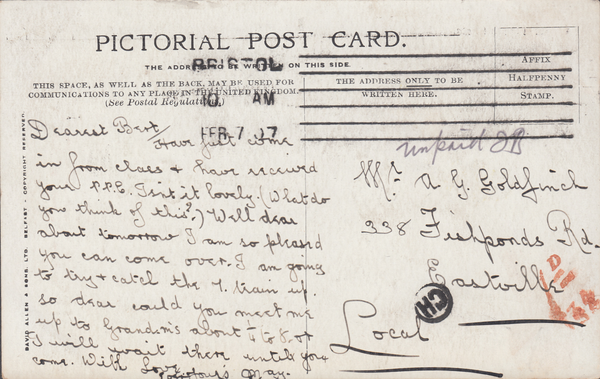 PICTORIAL POST CARD.
THE ADDRESS TO BE WRITTEN ON THIS SIDE.
THIS SPACE, AS WELL AS THE BACK, MAY BE USED FOR
COMMUNICATIONS TO ANY PLACE IN THE UNITED KINGDOM.
(See Postal Regulations.)
THE ADDRESS ONLY TO BE
WRITTEN HERE.
AFFIX
HALFPENNY
STAMP.
BRISTOL
10 AM
FEB 7 07
unpaid
Dearest Bert
Have just come
in from class & have received
your P.P.C. Isn't it lovely. (What do
you think of this?) Well dear
about tomorrow I am so pleased
you can come over. I am going
to try & catch the 7. train up.
so dear could you meet me
up to Grandm's about
I will wait there until you
come. With Love
May.
Mr. A G. Goldfinch
338 Fishponds Rd.
Eastville
Local
CH
DAVID ALLEN & SONS, LTD. BELFAST - COPYRIGHT RESERVED.